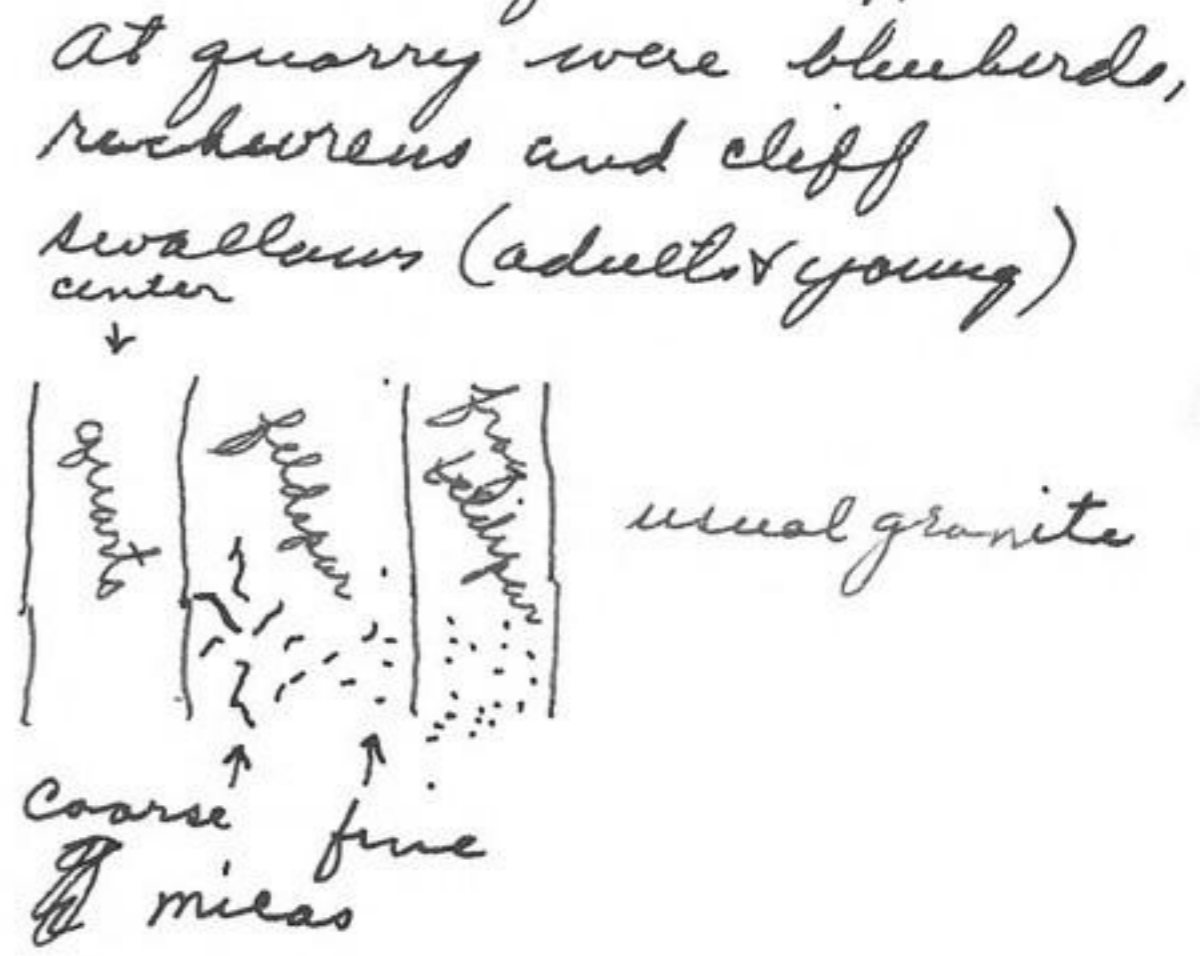 At quarry were bluebirds,
rockwrens and cliff
swallows (adults & young)
center
quartz
feldspar
feldspar
usual granite
coarse
fine
micas